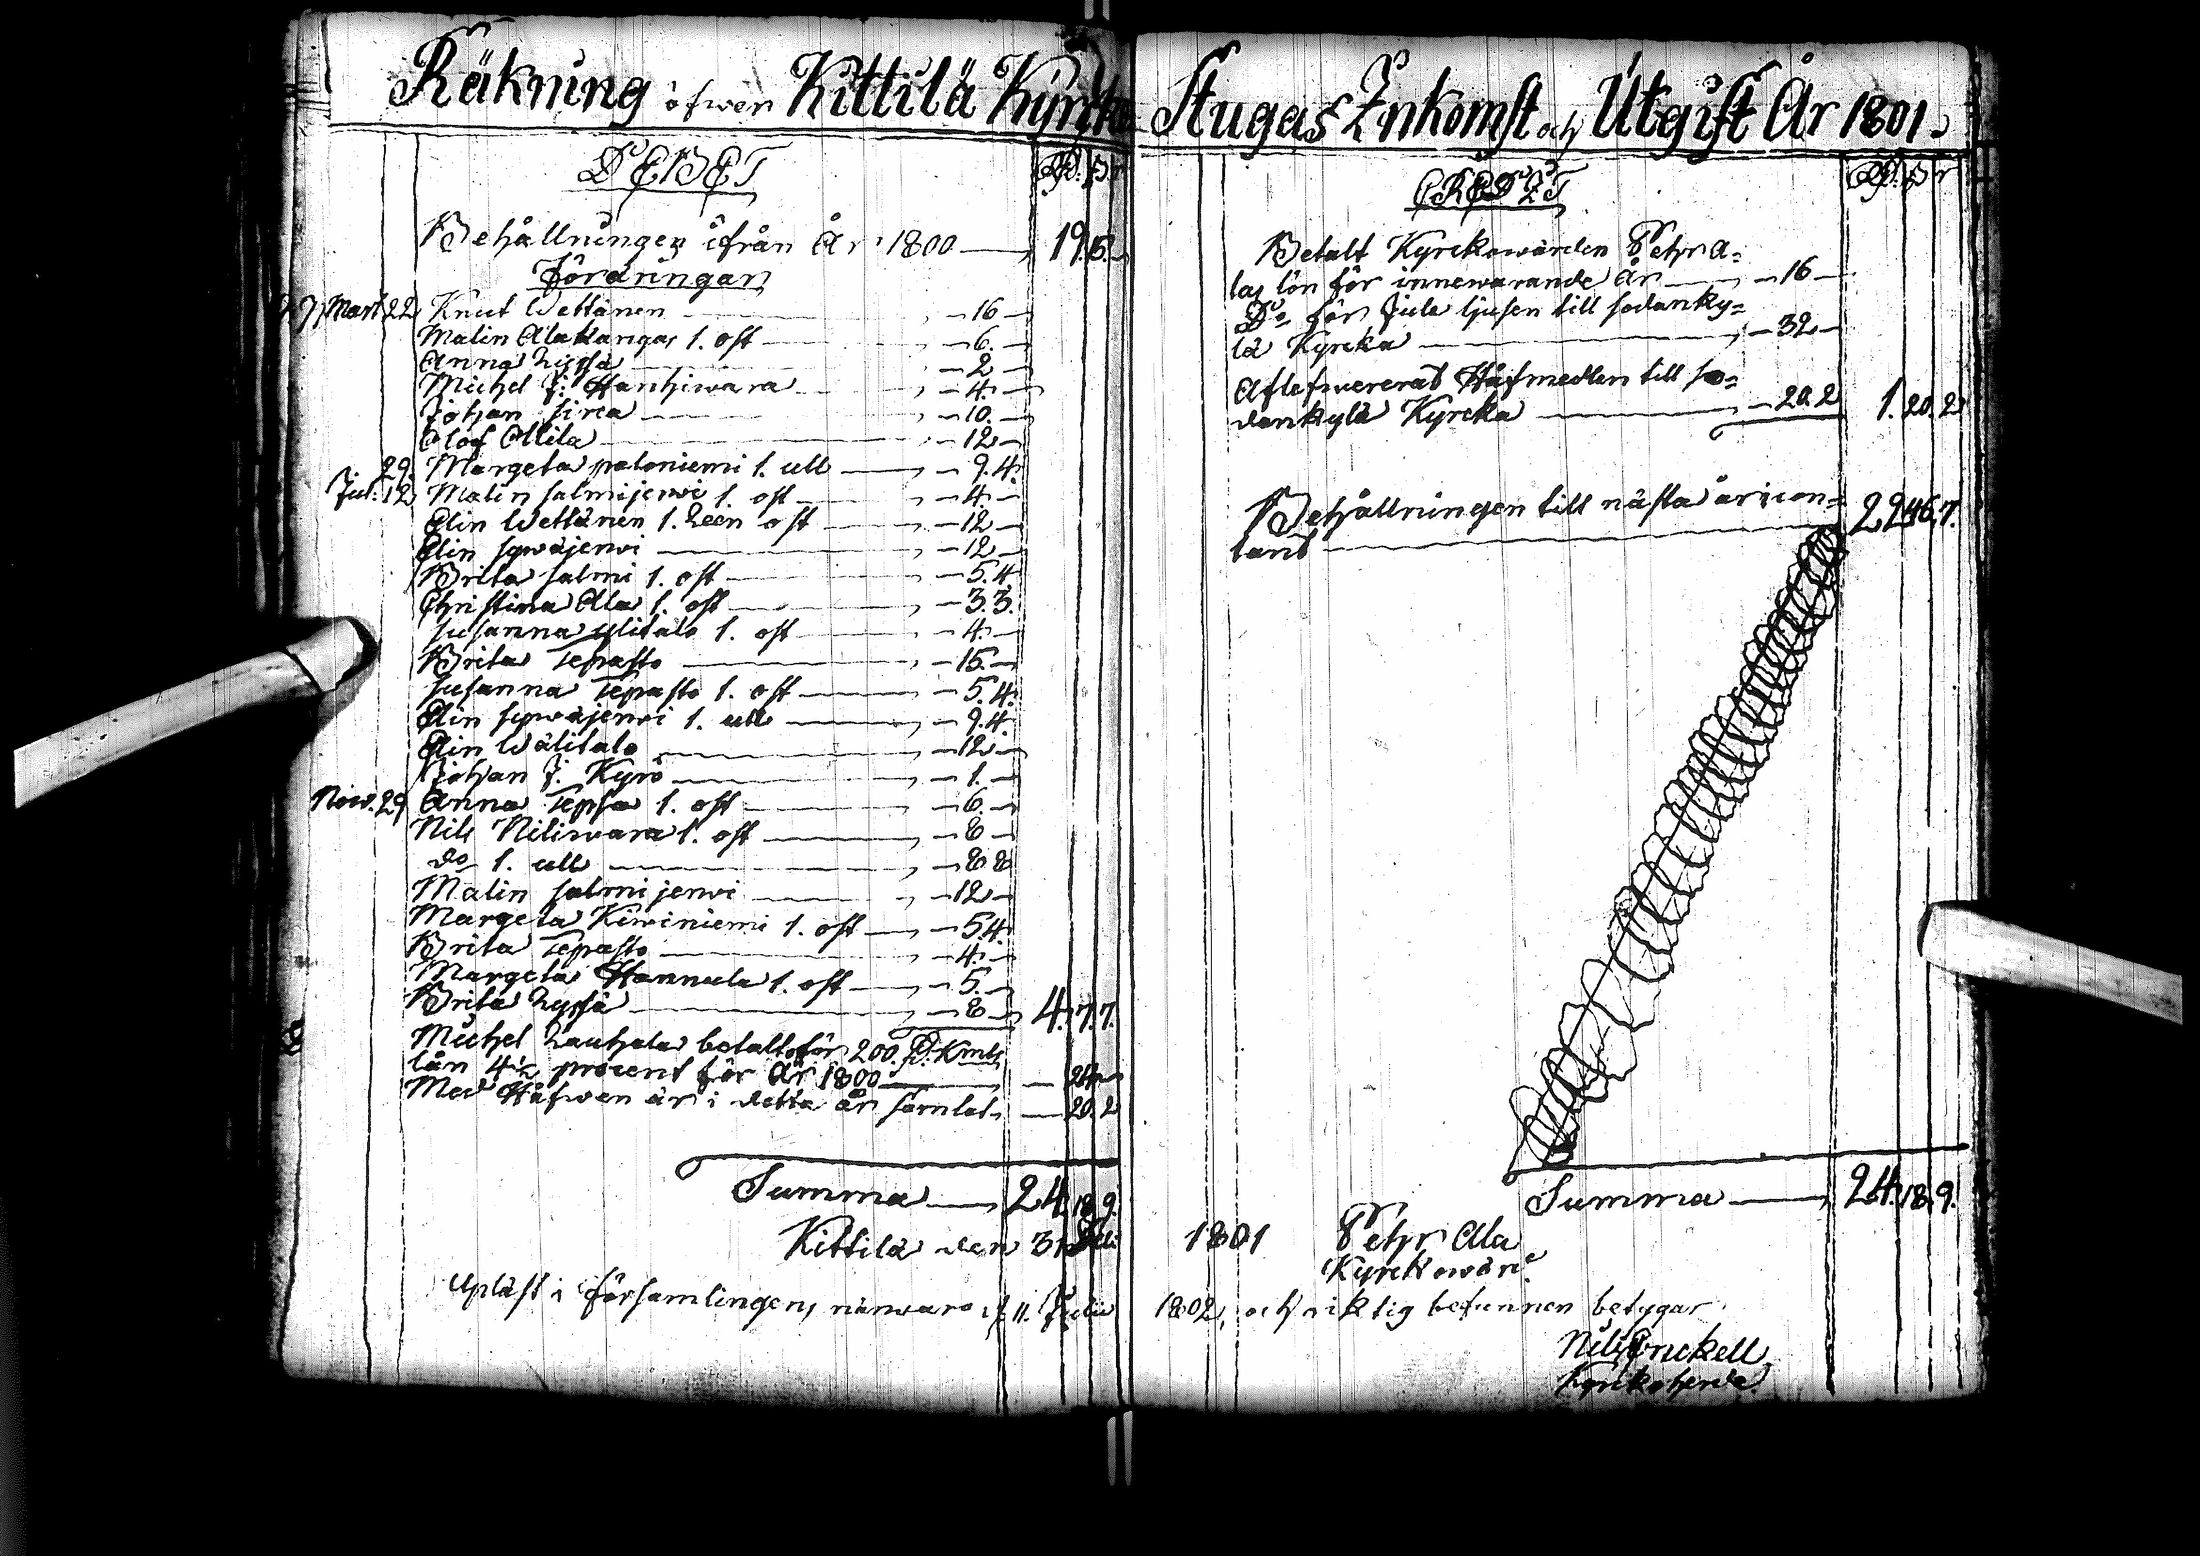 Räkning öfwer Kittilä Kyrcko Stugas Inkomst och Utgift År 1801.
DEBET
Rd. ß. r
Behållningen ifrån År 1800 — 19. 15. —
Fördringar
Mart. 22 Knut Wettänen — 16 —
Malin Alakangas 1. ost — 6. —
Anna Zyssä — 2 —
Michel J. Hanhiwara — 4. —
Johan Sirca — 10. —
Olof Ollila — 12 —
29. Margeta paloniemi 1. ull — 9. 4.
Jul. 12 Malin salmijerwi 1. ost — 4. —
Elin Wettänen 1. Leen ost — 12 —
Elin sywäjerwi — 12 —
Brita salmi 1. ost — 5. 4.
Christina Ala 1. ost — 3. 3.
susanna ylitalo 1. ost — 4. —
Brita Tepasto — 15. —
susanna Tepasto 1. ost — 5. 4.
Elin sywäjerwi 1. ull — 9. 4.
Elin Wälitalo — 12. —
Johan J. Kyrö — 1. —
Now. 29 Anna Tepsa 1. ost — 6. —
Nils Niliwara 1. ost — 8 —
do 1. ull — 8 8
Malin salmijerwi — 12 —
Margeta Kiwiniemi 1. ost — 5 4.
Brita Tepasto — 4. —
Margeta Hannula 1. ost — 5. —
Brita Zyssä — 8 — 4. 7. 7.
Michel Lauhala betalt för 200. D. Kmts
lån 4½ procent för År 1800 — 24 —
Med Håfwen är i detta år samlat — 20. 2
Summa — 24. 18. 9.
Kittilä den 31
Upläst i församlingens närwaro d. 11. Julii
CREDIT
Rd. ß r
Betalt Kyrckowärden Petr A=
las lön för innewarande år — 16 —
Do för Jula ljusen till sodanky=
lä Kyrcka — 32 —
Aflefwererat Håfmedlen till so=
dankylä Kyrcka — 20. 2 1. 20. 2
Behållningen till nästa år i con=
tant — 22 46. 7.
Summa — 24. 18. 9.
1801 Petr Ala
Kyrckowärd.
1802, och riktig befunnen betygar
Nils Enckell
Kyrkoherde.